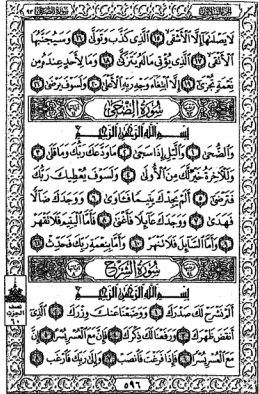 لَا يَصْلَىٰهَآ إِلَّا ٱلْأَشْقَى ١٥ ٱلَّذِى كَذَّبَ وَتَوَلَّىٰ ١٦ وَسَيُجَنَّبُهَا
ٱلْأَتْقَى ١٧ ٱلَّذِى يُؤْتِى مَالَهُۥ يَتَزَكَّىٰ ١٨ وَمَا لِأَحَدٍ عِندَهُۥ مِن
نِّعْمَةٍ تُجْزَىٰٓ ١٩ إِلَّا ٱبْتِغَآءَ وَجْهِ رَبِّهِ ٱلْأَعْلَىٰ ٢٠ وَلَسَوْفَ يَرْضَىٰ ٢١
سُورَةُ الضُّحَىٰ
بِسْمِ ٱللَّهِ ٱلرَّحْمَٰنِ ٱلرَّحِيمِ
وَٱلضُّحَىٰ ١ وَٱلَّيْلِ إِذَا سَجَىٰ ٢ مَا وَدَّعَكَ رَبُّكَ وَمَا قَلَىٰ ٣
وَلَلْءَاخِرَةُ خَيْرٌ لَّكَ مِنَ ٱلْأُولَىٰ ٤ وَلَسَوْفَ يُعْطِيكَ رَبُّكَ
فَتَرْضَىٰٓ ٥ أَلَمْ يَجِدْكَ يَتِيمًا فَـَٔاوَىٰ ٦ وَوَجَدَكَ ضَآلًّا
فَهَدَىٰ ٧ وَوَجَدَكَ عَآئِلًا فَأَغْنَىٰ ٨ فَأَمَّا ٱلْيَتِيمَ فَلَا تَقْهَرْ
٩ وَأَمَّا ٱلسَّآئِلَ فَلَا تَنْهَرْ ١٠ وَأَمَّا بِنِعْمَةِ رَبِّكَ فَحَدِّثْ ١١
سُورَةُ الشَّرْحِ
بِسْمِ ٱللَّهِ ٱلرَّحْمَٰنِ ٱلرَّحِيمِ
أَلَمْ نَشْرَحْ لَكَ صَدْرَكَ ١ وَوَضَعْنَا عَنكَ وِزْرَكَ ٢ ٱلَّذِىٓ
أَنقَضَ ظَهْرَكَ ٣ وَرَفَعْنَا لَكَ ذِكْرَكَ ٤ فَإِنَّ مَعَ ٱلْعُسْرِ يُسْرًا ٥ إِنَّ
مَعَ ٱلْعُسْرِ يُسْرًا ٦ فَإِذَا فَرَغْتَ فَٱنصَبْ ٧ وَإِلَىٰ رَبِّكَ فَٱرْغَب ٨
نصف
الحزب
٦٠
٥٩٦